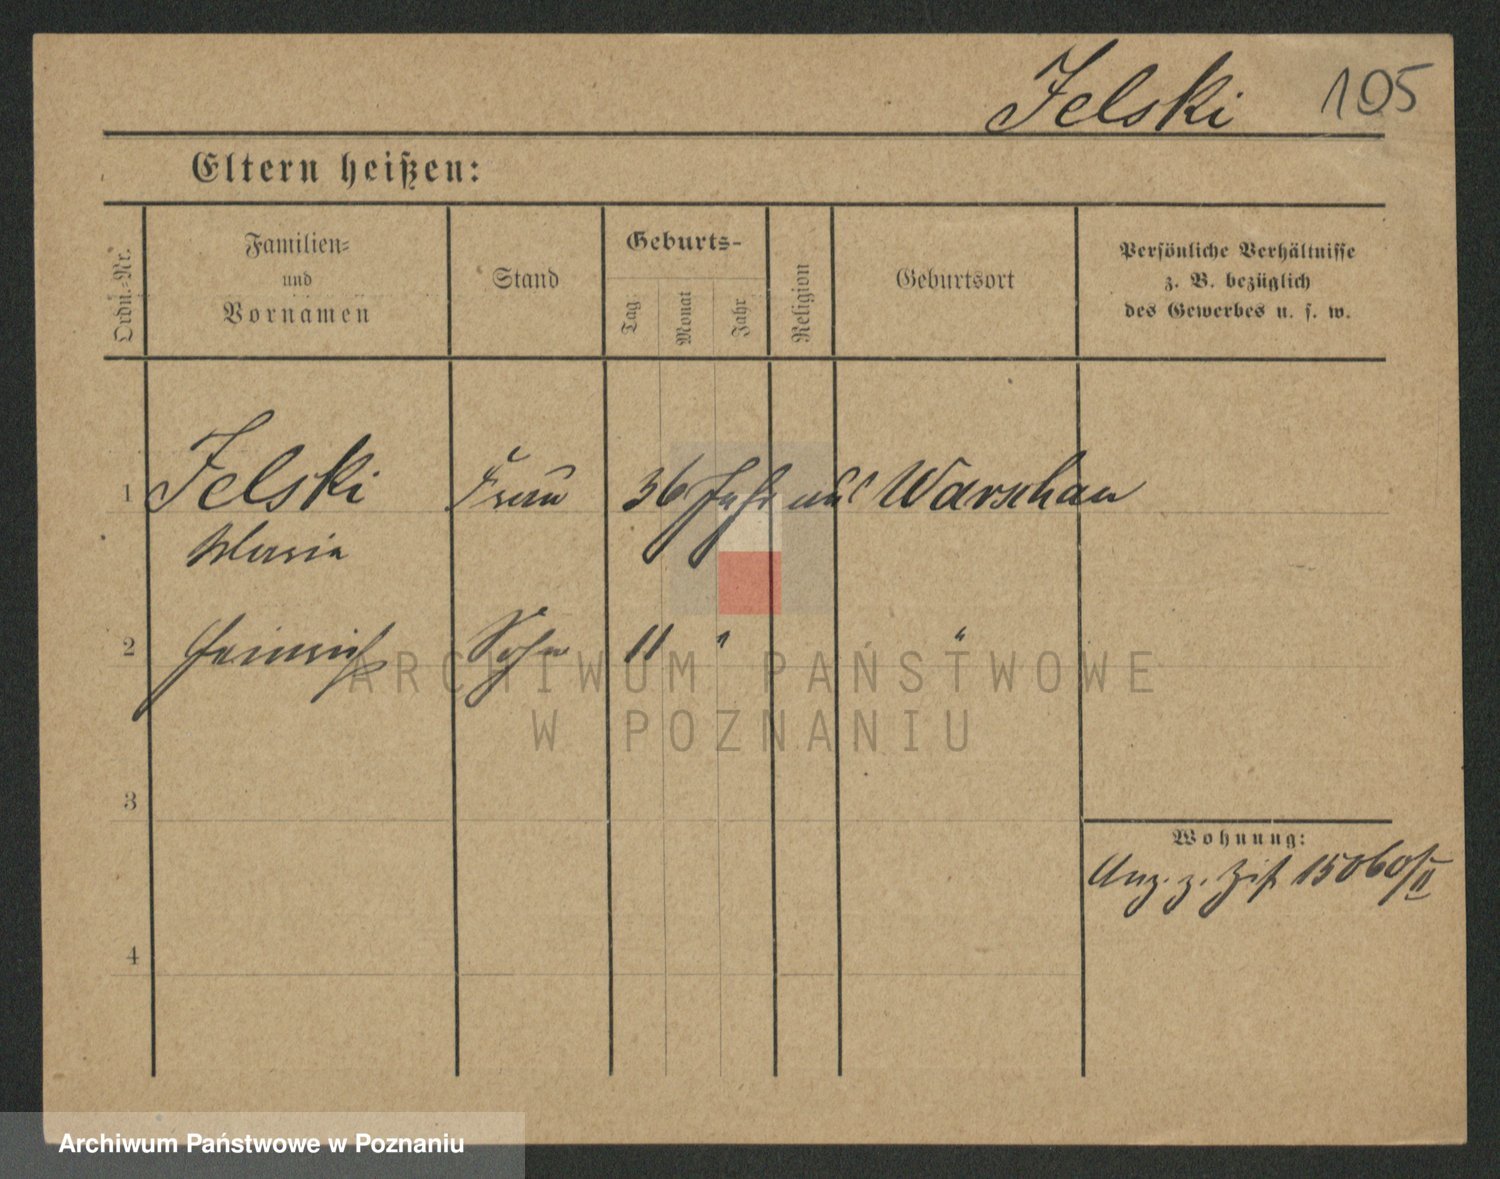 Jelski 105
Eltern heißen:
Ordn.-Nr.
Familien-
und
Vornamen
Stand
Geburts-
Tag.
Monat
Jahr
Religion
Geburtsort
Persönliche Verhältnisse
z. B. bezüglich
des Gewerbes u. s. w.
1 Jelski Frau 36 Jahr alt Warschau
Maria
2 Heinrich Sohn 11 " "
ARCHIWUM PAŃSTWOWE
W POZNANIU
3
Wohnung:
Anz. z. 15060/II
4
Archiwum Państwowe w Poznaniu